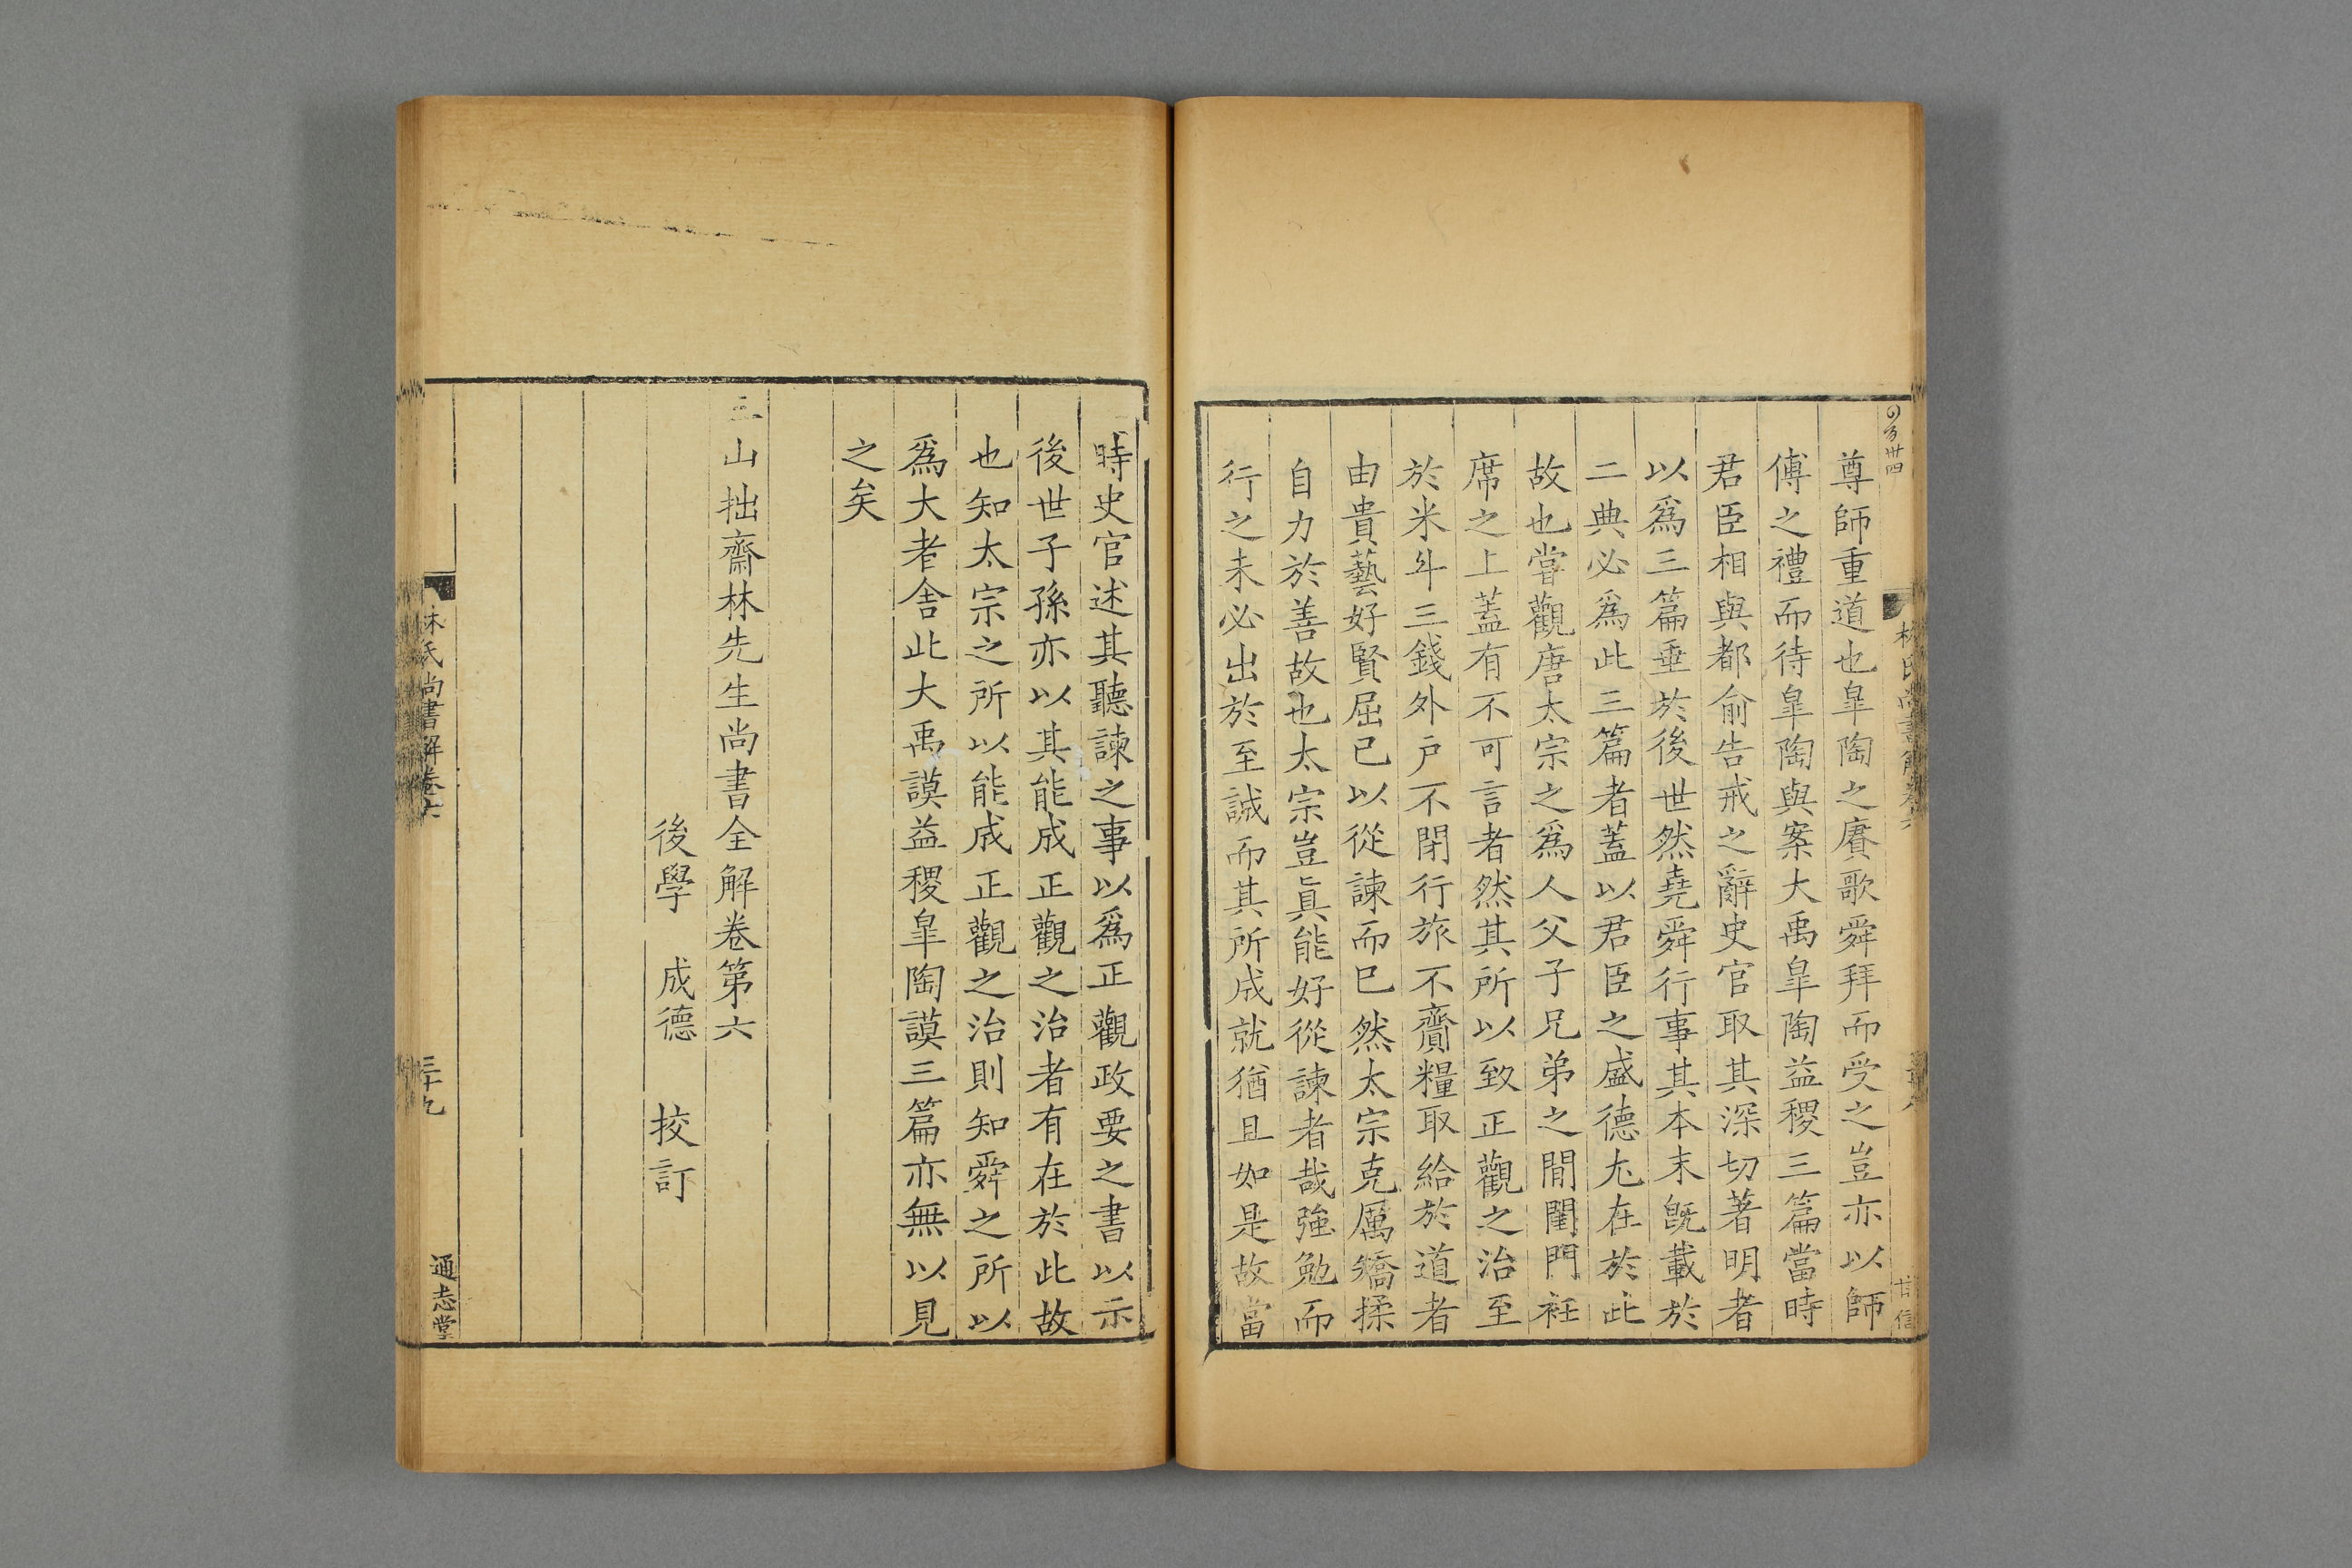 尊師重道也皐陶之賡歌舜拜而受之豈亦以師
傅之禮而待皐陶與案大禹皐陶益稷三篇當時
君臣相與都俞告戒之辭史官取其深切著明者
以爲三篇垂於後世然堯舜行事其本末旣載於
二典必爲此三篇者蓋以君臣之盛德尤在於此
故也嘗觀唐太宗之爲人父子兄弟之閒閨門衽
席之上蓋有不可言者然其所以致正觀之治至
於米斗三錢外户不閉行旅不齎糧取給於道者
由貴藝好賢屈已以從諫而巳然太宗克厲矯揉
自力於善故也太宗豈眞能好從諫者哉強勉而
行之未必出於至誠而其所成就猶且如是故當
時史官述其聽諫之事以爲正觀政要之書以示
後世子孫亦以其能成正觀之治者有在於此故
也知太宗之所以能成正觀之治則知舜之所以
爲大者舍此大禹謨益稷皐陶謨三篇亦無以見
之矣
三山拙齋林先生尚書全解卷第六
後學 成德 挍訂
林氏尚書解卷六
三十九
通志堂